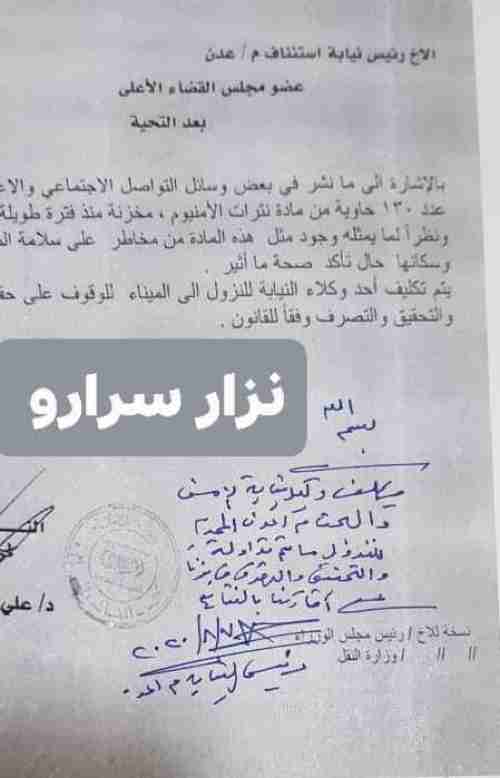 الاخ رئيس نيابة استئناف م/ عدن
عضو مجلس القضاء الأعلى
بعد التحية
بالإشارة الى ما نشر في بعض وسائل التواصل الاجتماعي والاع
عدد ١٣٠ حاوية من مادة نترات الأمنيوم ، مخزنة منذ فترة طويلة
ونظراً لما يمثله وجود مثل هذه المادة من مخاطر على سلامة ال
وسكانها حال تأكد صحة ما أثير .
يتم تكليف أحد وكلاء النيابة للنزول الى الميناء للوقوف على حق
والتحقيق والتصرف وفقاً للقانون .
نزار سرارو
بسم الله
يكلف وكيل نيابة
والبحث
للنزول
والتحقيق
بالنتائج
د/ علي
نسخة للاخ / رئيس مجلس الوزراء
// // / وزارة النقل
٢٠٢٠/٨/
رئيس نيابة